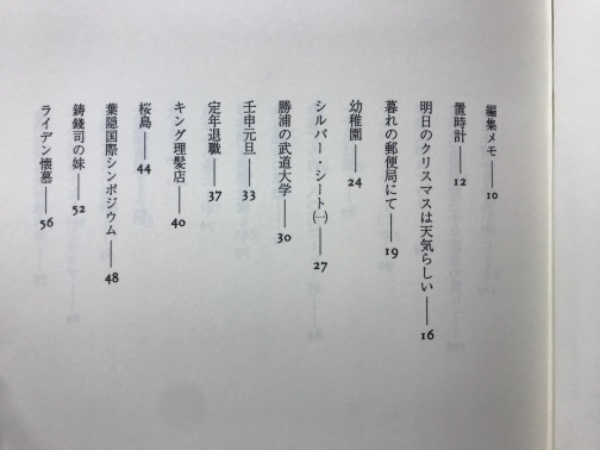 編集メモ——10
置時計——12
明日のクリスマスは天気らしい——16
暮れの郵便局にて——19
幼稚園——24
シルバー・シート㈠——27
勝浦の武道大学——30
壬申元旦——33
定年退職——37
キング理髪店——40
桜島——44
葉隠国際シンポジウム——48
鋳銭司の妹——52
ライデン懐慕——56